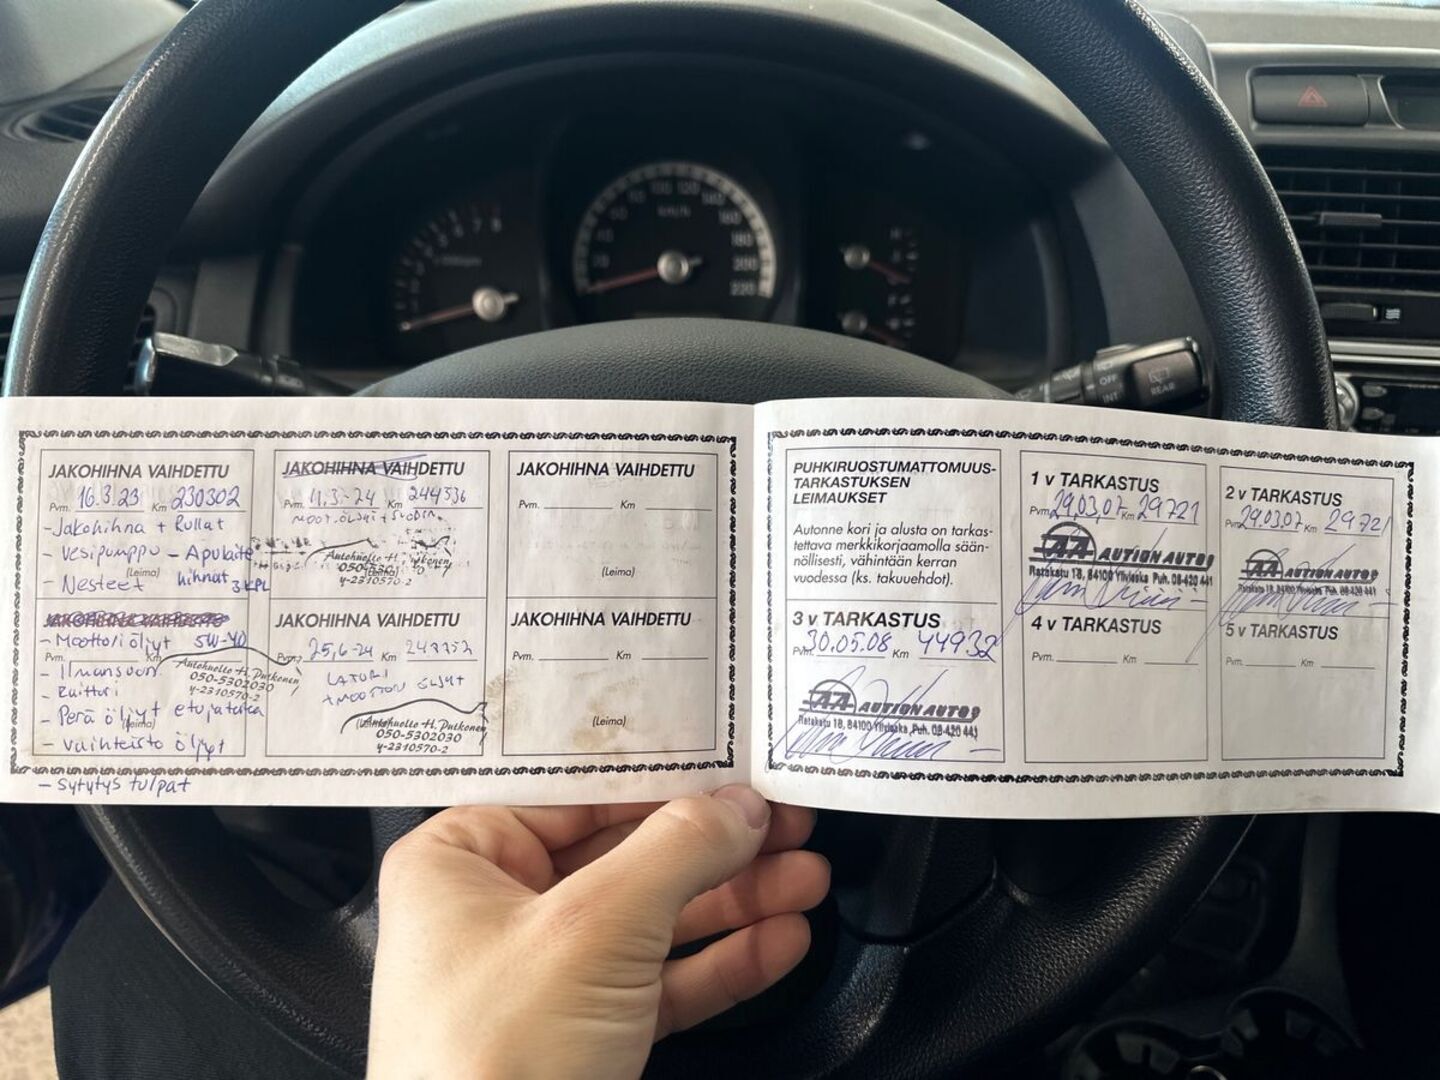 JAKOHIHNA VAIHDETTU
Pvm. 16.3.23 Km 230302
- Jakohihna + Rullat
- Vesipumppu - Apulaite
hihnat 3 KPL
- Nesteet
(Leima)
JAKOHIHNA VAIHDETTU
- Moottoriöljyt 5W-40
Pvm. Km
- Ilmansuon
- Raittiri
- Perä öljyt etu ja taka
(Leima)
- Vaihteisto öljyt
- Sytytys tulpat
Autohuolto H. Putkonen
050-5302030
y-2310570-2
JAKOHIHNA VAIHDETTU
Pvm. 11.3-24 Km 244536
MOOT.ÖLJYT + SUODIN
Autohuolto H. Putkonen
050-530
(Leima)
y-2310570-2
JAKOHIHNA VAIHDETTU
Pvm. 25,6-24 Km
LATURI
+ MOOTTORI ÖLJYT
Autohuolto H. Putkonen
050-5302030
y-2310570-2
JAKOHIHNA VAIHDETTU
Pvm. Km
(Leima)
JAKOHIHNA VAIHDETTU
Pvm. Km
(Leima)
PUHKIRUOSTUMATTOMUUS-
TARKASTUKSEN
LEIMAUKSET
Autonne kori ja alusta on tarkas-
tettava merkkikorjaamolla sään-
nöllisesti, vähintään kerran
vuodessa (ks. takuuehdot).
1 v TARKASTUS
Pvm. 29.03.07 Km 29721
AA AUTION AUTO
Ratakatu 18, 84100 Ylivieska Puh. 08-420 441
2 v TARKASTUS
Pvm. 29.03.07 Km 29721
AA AUTION AUTO
Ratakatu 18, 84100 Ylivieska Puh. 08-420 441
3 v TARKASTUS
Pvm. 30.05.08 Km 44932
AA AUTION AUTO
Ratakatu 18, 84100 Ylivieska, Puh. 08-420 441
4 v TARKASTUS
Pvm. Km
5 v TARKASTUS
Pvm. Km
100 120 140 160 180 200 220
km/h
OFF
INT
REAR